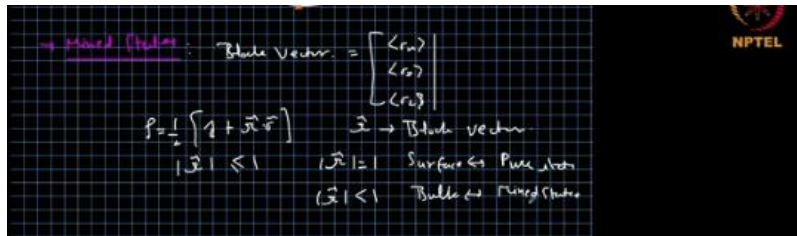 → Mixed States : Bloch Vector. = [ <σx>
<σy>
<σz> ]
NPTEL
ρ = 1/2 [ 1 + r⃗ σ⃗ ] r⃗ → Bloch vector.
|r⃗| ≤ 1 |r⃗| = 1 Surface ↔ Pure states
|r⃗| < 1 Bulk ↔ Mixed States